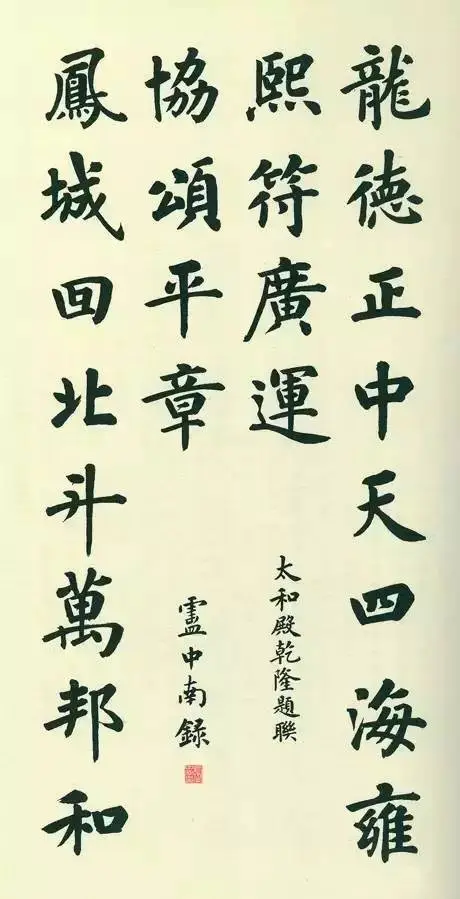 龍德正中天四海雍
熙符廣運
太和殿乾隆題聯
鳳城回北斗萬邦和
協頌平章
盧中南録